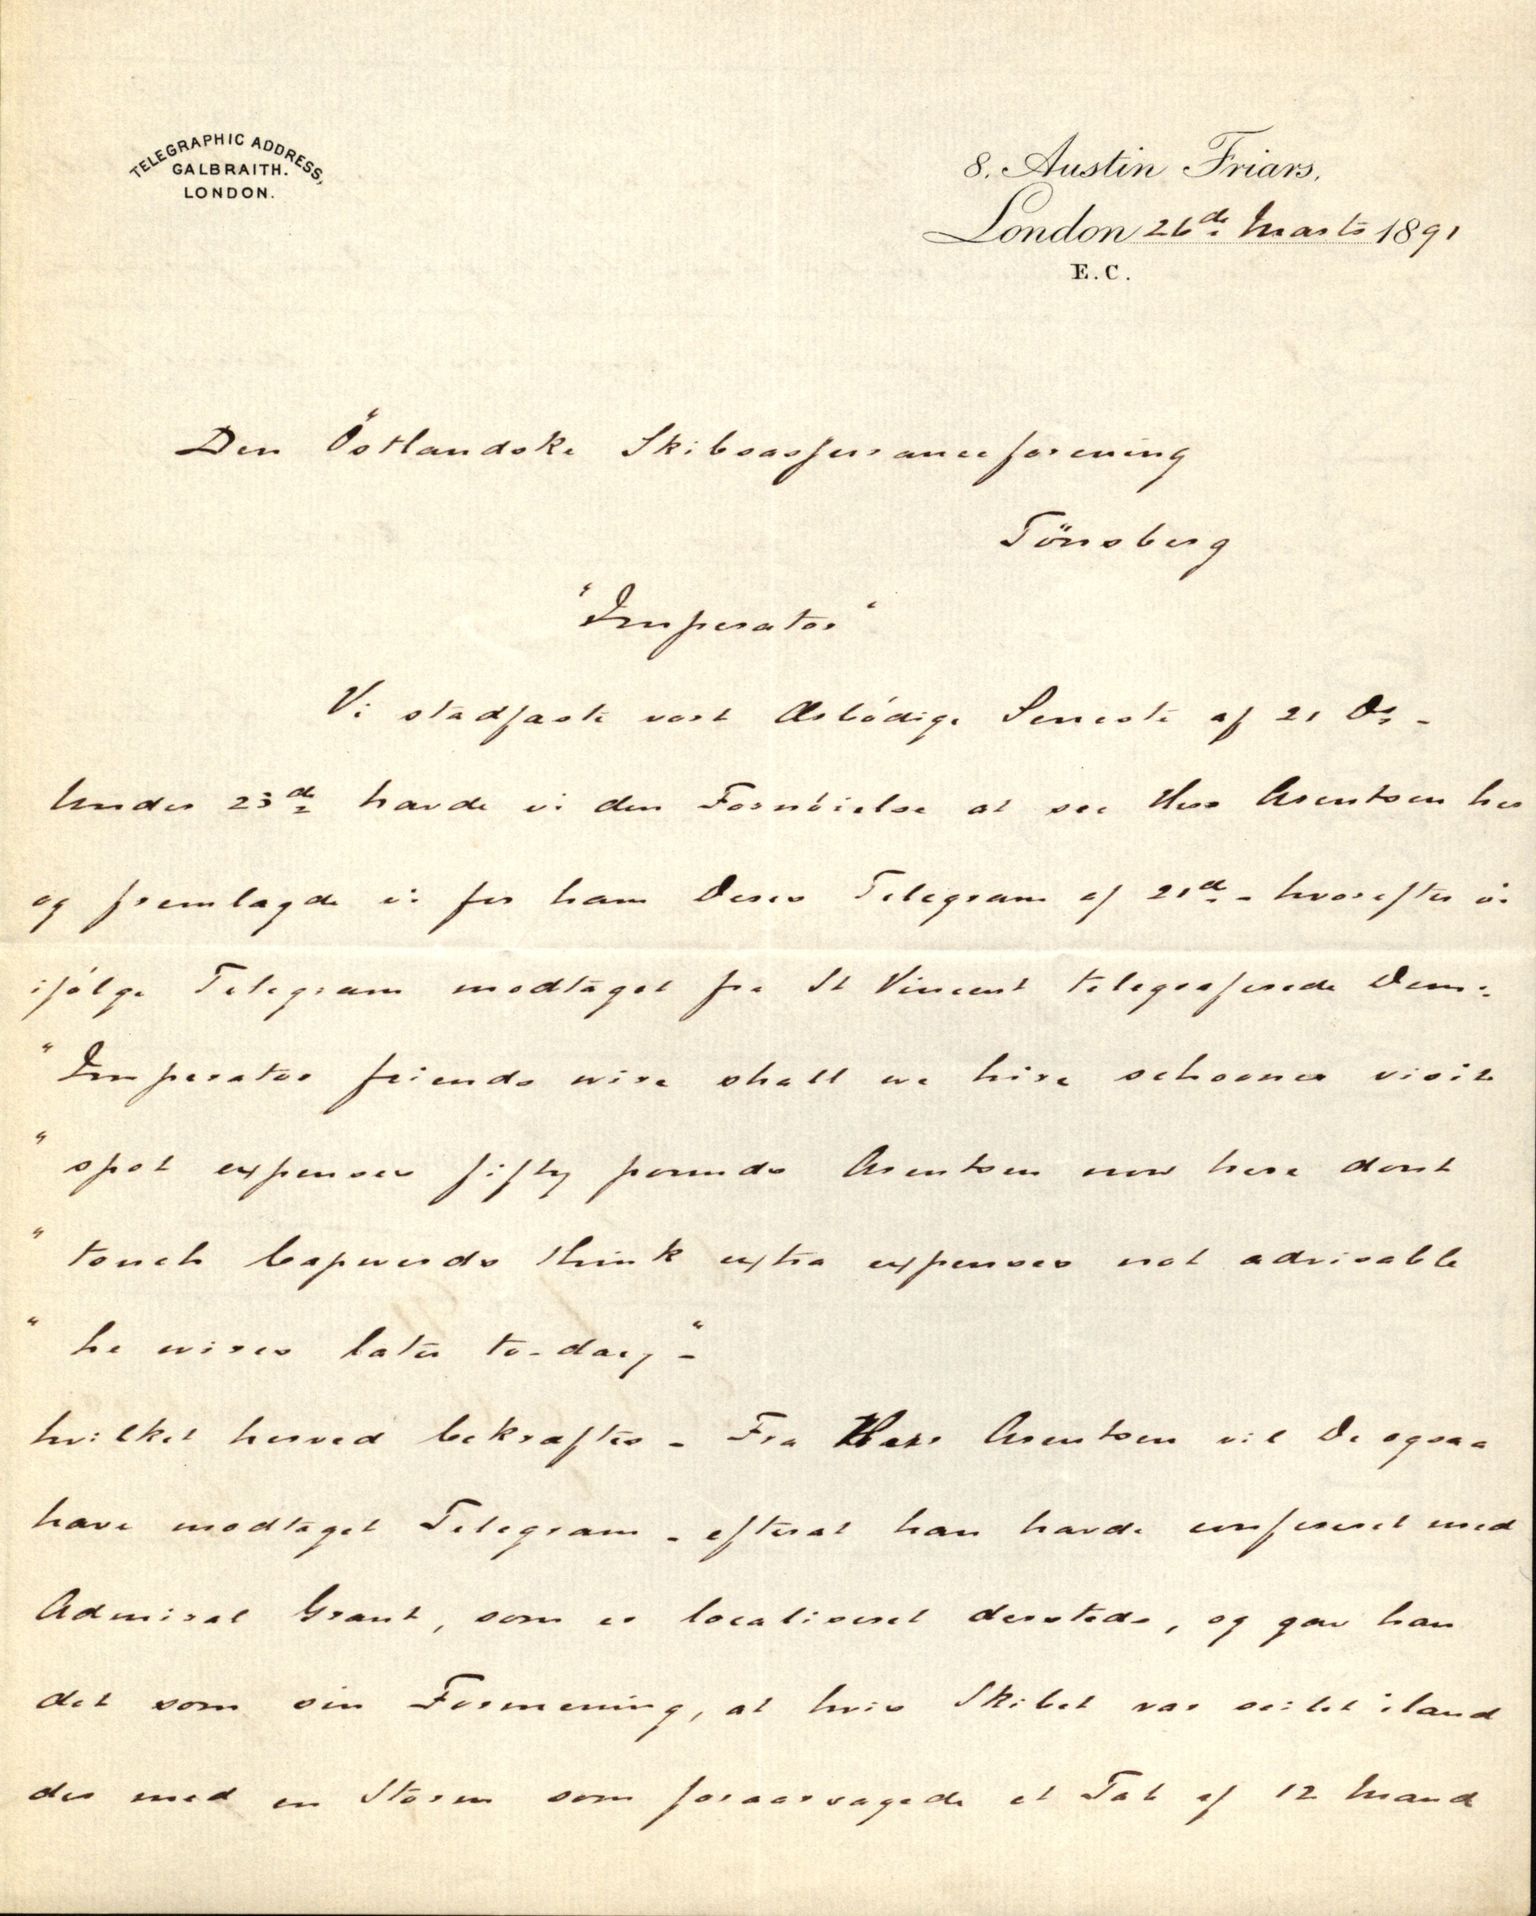 TELEGRAPHIC ADDRESS,
GALBRAITH.
LONDON.
8, Austin Friars,
London 26de Marts 1891
E.C.
Den Östlandske Skibsassuranceforening
Tönsberg
"Imperator"
Vi stadfæste vort Ærbödige Seneste af 21 Ds -
Under 23de havde vi den Fornöielse at see Herr Arentsen her
og fremlagde vi for ham Deres Telegram af 21de - hvorefter vi
ifölge Telegram modtaget fra St Vincent telegraferede Dem:
"Imperator friends wire shall we hire schooner visit
" spot expenses fifty pounds Arentsen now here dont
" touch Capverds think extra expenses not advisable
" he wires later to-day" -
hvilket herved bekræftes - Fra Herr Arentsen vil De ogsaa
have modtaget Telegram - efterat han havde confereret med
Admiral Grant, som er localiseret dersteds, og gav han
det som sin Formening, at hvis Skibet var seilet iland
der med en Storm som foraarsagede et Tab af 12 Mand